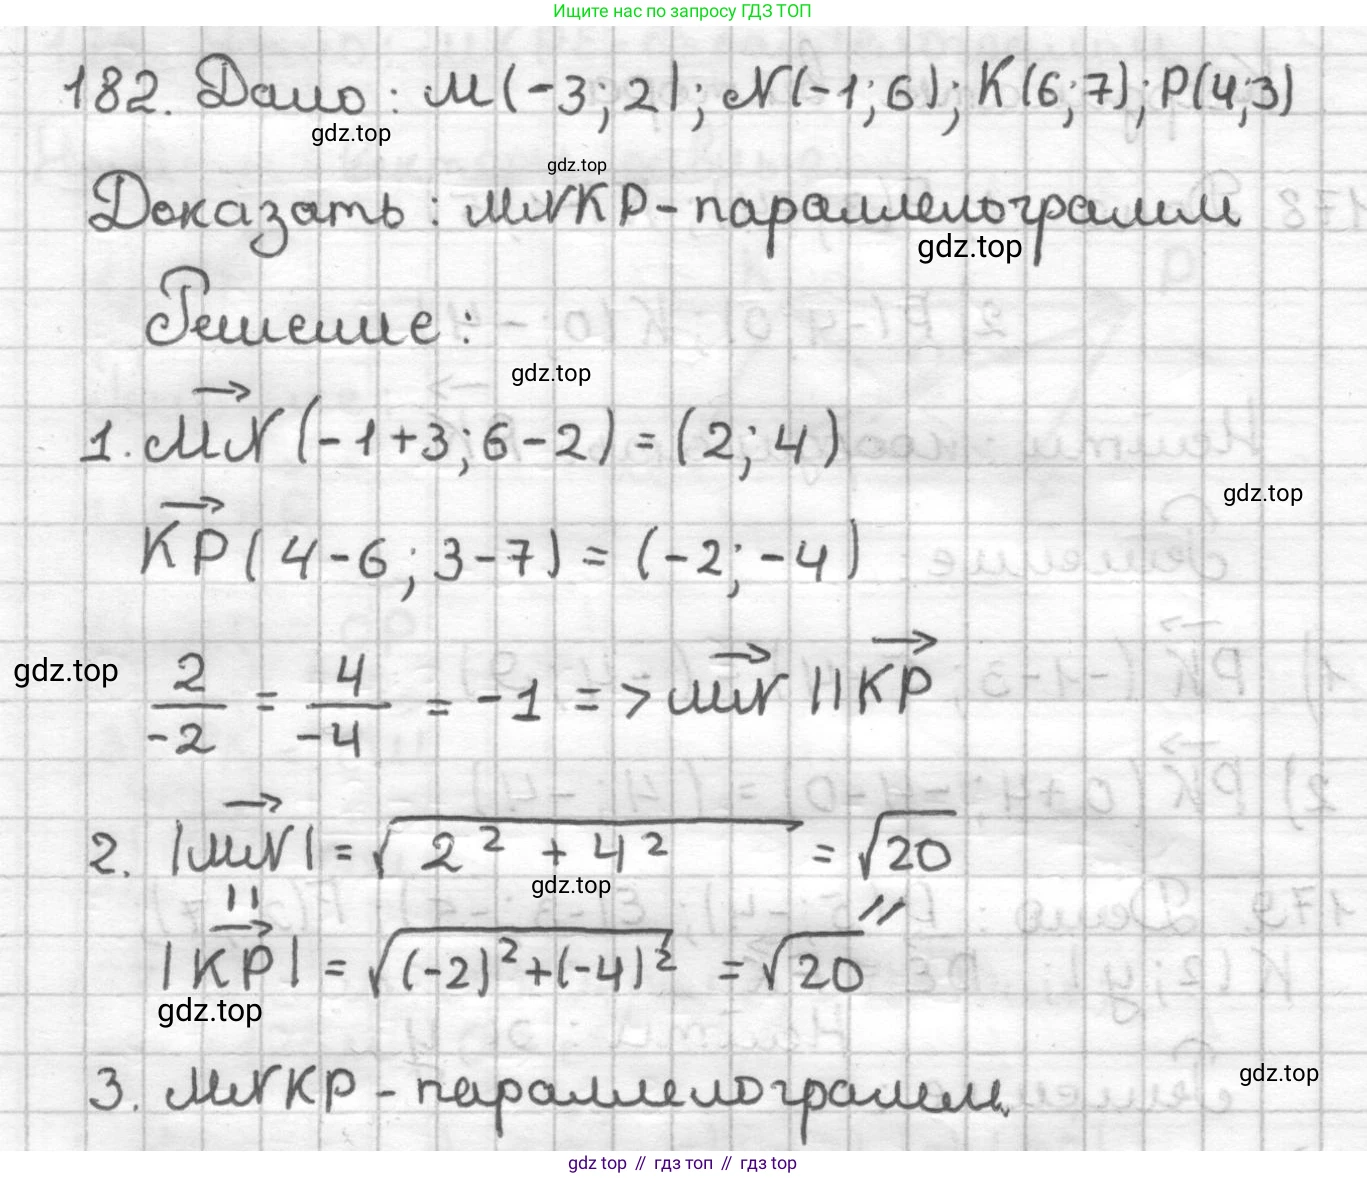 Ищите нас по запросу ГДЗ ТОП
182. Дано: M(-3; 2); N(-1; 6); K(6; 7); P(4; 3)
gdz.top
gdz.top
Доказать: MNKP - параллелограмм
gdz.top
Решение:
gdz.top
1. MN→ (-1+3; 6-2) = (2; 4)
gdz.top
KP→ (4-6; 3-7) = (-2; -4)
gdz.top
2/-2 = 4/-4 = -1 => MN→ || KP→
2. |MN→| = √(2² + 4²) = √20
gdz.top
|| //
|KP→| = √((-2)²+(-4)²) = √20
gdz.top
gdz.top
3. MNKP - параллелограмм.
gdz top // гдз топ // gdz top